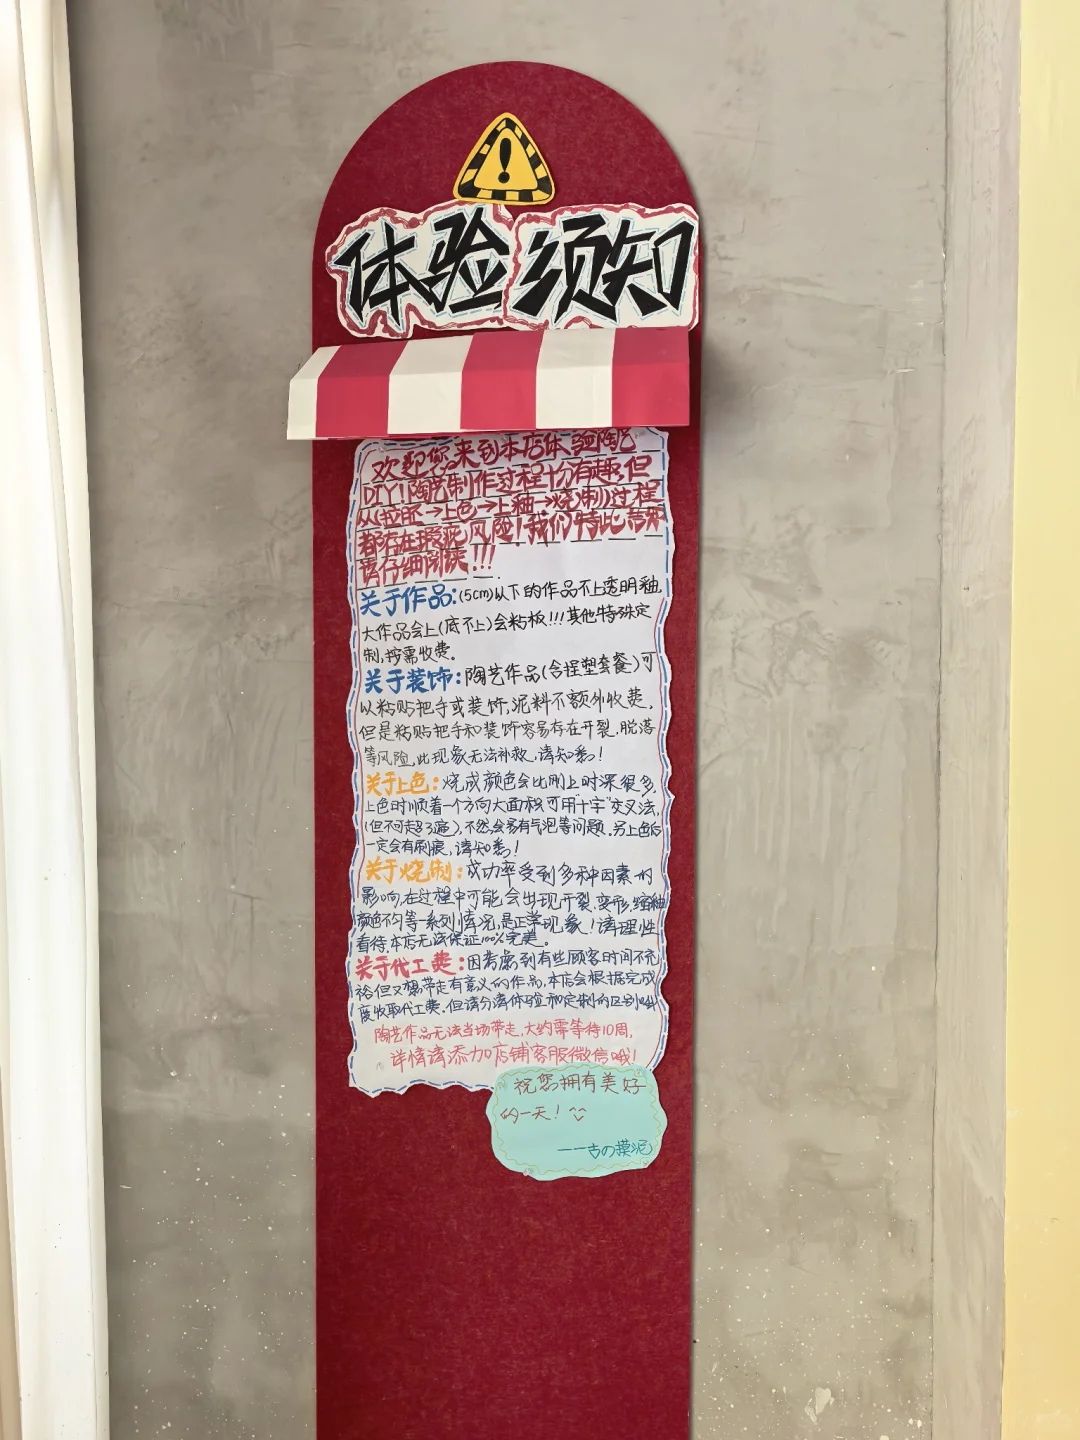 体验须知
欢迎您来到本店体验陶艺
DIY!陶艺制作过程十分有趣,但
从(拉胚→上色→上釉→烧制)过程
都存在瑕疵风险!我们特此告知
请仔细阅读!!!
关于作品:(5cm)以下的作品不上透明釉
大作品会上(底不上)会粘板!!!其他特殊定
制,按需收费。
关于装饰:陶艺作品(含捏塑套餐)可
以粘贴把手或装饰,泥料不额外收费,
但是粘贴把手和装饰容易存在开裂,脱落
等风险,此现象无法补救,请知悉!
关于上色:烧成颜色会比刚上时深很多,
上色时顺着一个方向大面积可用"十字"交叉法,
(但不可超3遍),不然会易有气泡等问题.另上色后
一定会有刷痕,请知悉!
关于烧制:成功率受到多种因素的
影响,在过程中可能会出现开裂,变形,缩釉
颜色不匀等一系列情况,是正常现象!请理性
看待.本店无法保证100%完美。
关于代工费:因考虑到有些顾客时间不充
裕但又想带走有意义的作品,本店会根据完成
度收取代工费.但请分清体验和定制的区别哦!
陶艺作品无法当场带走,大约需等待10周,
详情请添加店铺客服微信哦!
祝您拥有美好
的一天!
——古の摸泥